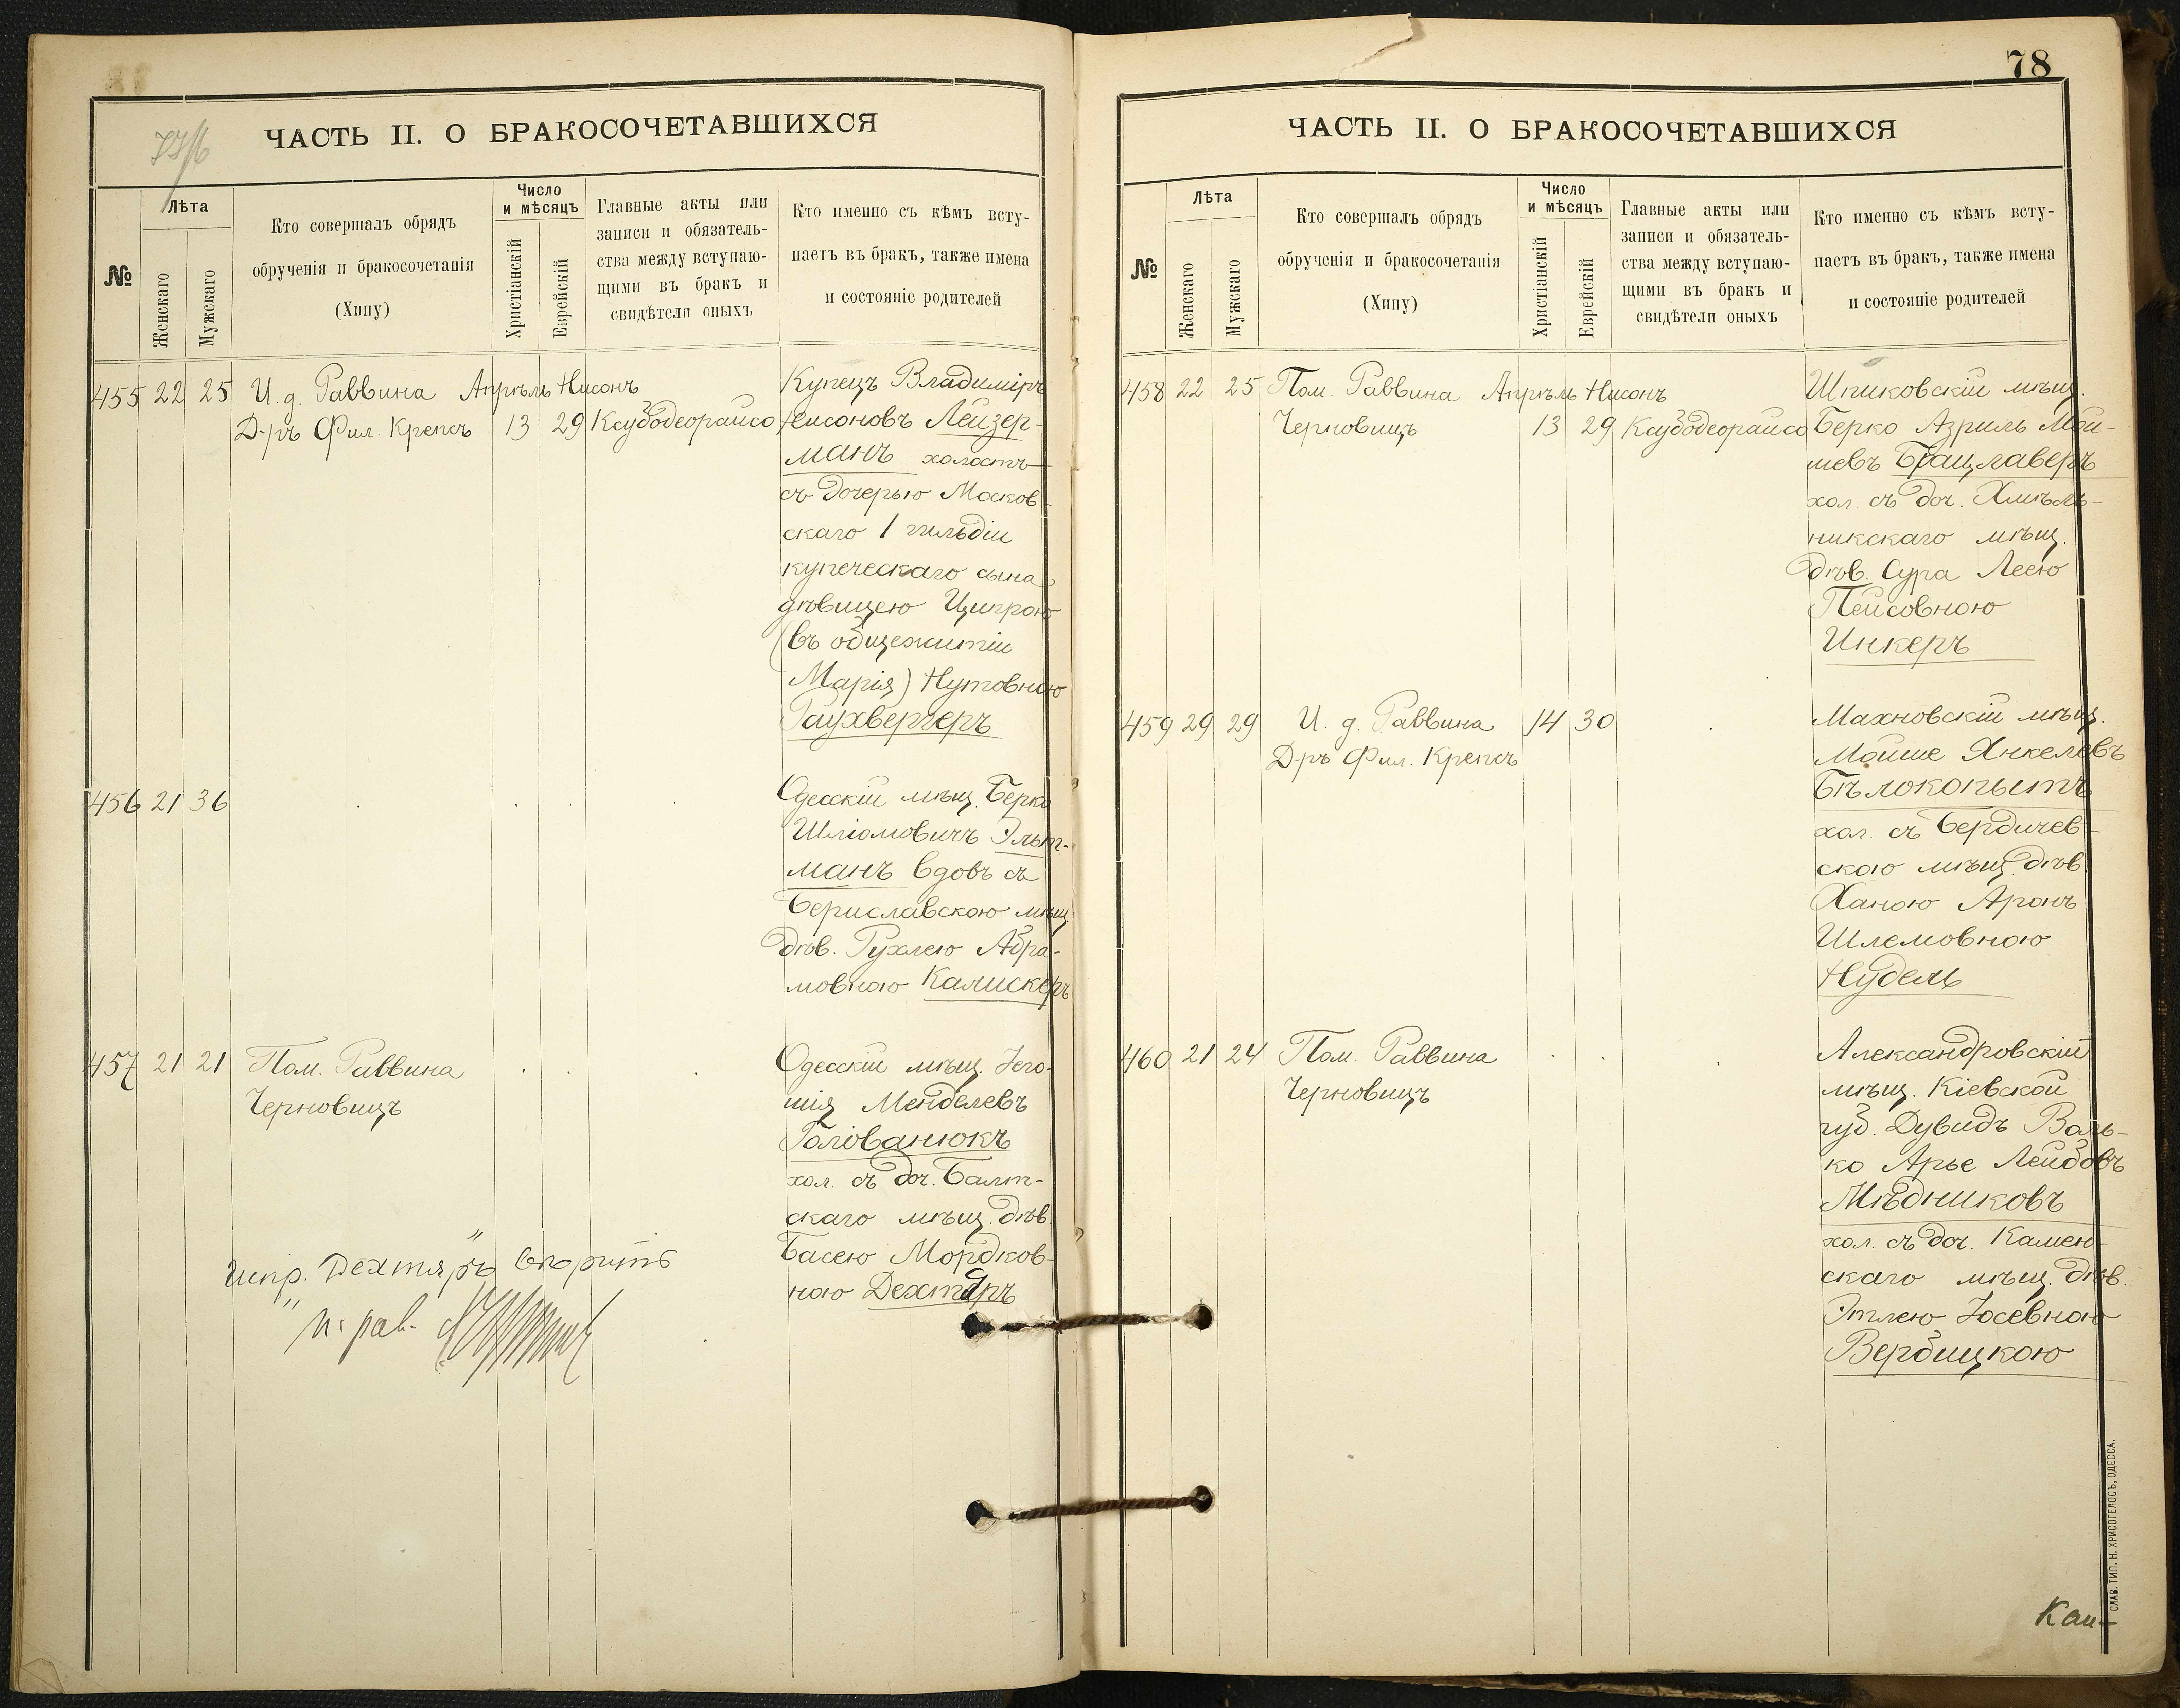 ЧАСТЬ II. О БРАКОСОЧЕТАВШИХСЯ
№
Лѣта
Женскаго
Мужскаго
Кто совершалъ обрядъ
обрученія и бракосочетанія
(Хипу)
Число
и мѣсяцъ
Христіанскій
Еврейскій
Главные акты или
записи и обязатель-
ства между вступаю-
щими въ бракъ и
свидѣтели оныхъ
Кто именно съ кѣмъ всту-
паетъ въ бракъ, также имена
и состояніе родителей
455 22 25 И. д. Раввина Апрѣль Нисонъ
Д-ръ Фил. Крепсъ 13 29 Ксубодеорайсо
Купецъ Владиміръ
Лейзер-
манъ холостъ
съ дочерью Москов-
скаго 1 гильдіи
купеческаго сына
дѣвицею Ципрою
(въ общежитіи
Марія) Нутовною
Раухвергеръ
456 21 36
Одесскій мѣщ. Берко
Шліомовичъ Эльт-
манъ вдовъ съ
Бериславскою мѣщ.
дѣв. Рухлею Абра-
мовною Калискеръ
457 21 21 Пом. Раввина
Черновицъ
Одесскій мѣщ. Іего-
шія Менделевъ
Голованюкъ
хол. съ доч. Балт-
скаго мѣщ. дѣв.
Басею Мордков-
ною Дехтяръ
Испр. "Дехтяръ" вѣрить
78
ЧАСТЬ II. О БРАКОСОЧЕТАВШИХСЯ
№
Лѣта
Женскаго
Мужскаго
Кто совершалъ обрядъ
обрученія и бракосочетанія
(Хипу)
Число
и мѣсяцъ
Христіанскій
Еврейскій
Главные акты или
записи и обязатель-
ства между вступаю-
щими въ бракъ и
свидѣтели оныхъ
Кто именно съ кѣмъ всту-
паетъ въ бракъ, также имена
и состояніе родителей
458 22 25 Пом. Раввина Апрѣль Нисонъ
Черновицъ 13 29 Ксубодеорайсо
Шпиковскій мѣщ.
Берко Азриль Мой-
шевъ Брацлаверъ
хол. съ доч. Хмѣль-
никскаго мѣщ.
дѣв. Сура Леею
Пейсовною
Инкеръ
459 29 29 И. д. Раввина 14 30
Д-ръ Фил. Крепсъ
Махновскій мѣщ.
Мойше Янкелевъ
Бѣлокопытъ
хол. съ Бердичев-
скою мѣщ. дѣв.
Ханою Аронъ
Шлемовною
Нудель
460 21 24 Пом. Раввина
Черновицъ
Александровскій
мѣщ. Кіевской
губ. Дувидъ Воль-
ко Арье Лейбовъ
Мѣдниковъ
хол. съ доч. Камен-
скаго мѣщ. дѣв.
Этлею Іосевною
Вербицкою
СЛАВ. ТИП. Н. ХРИСОГЕЛОСЪ, ОДЕССА.